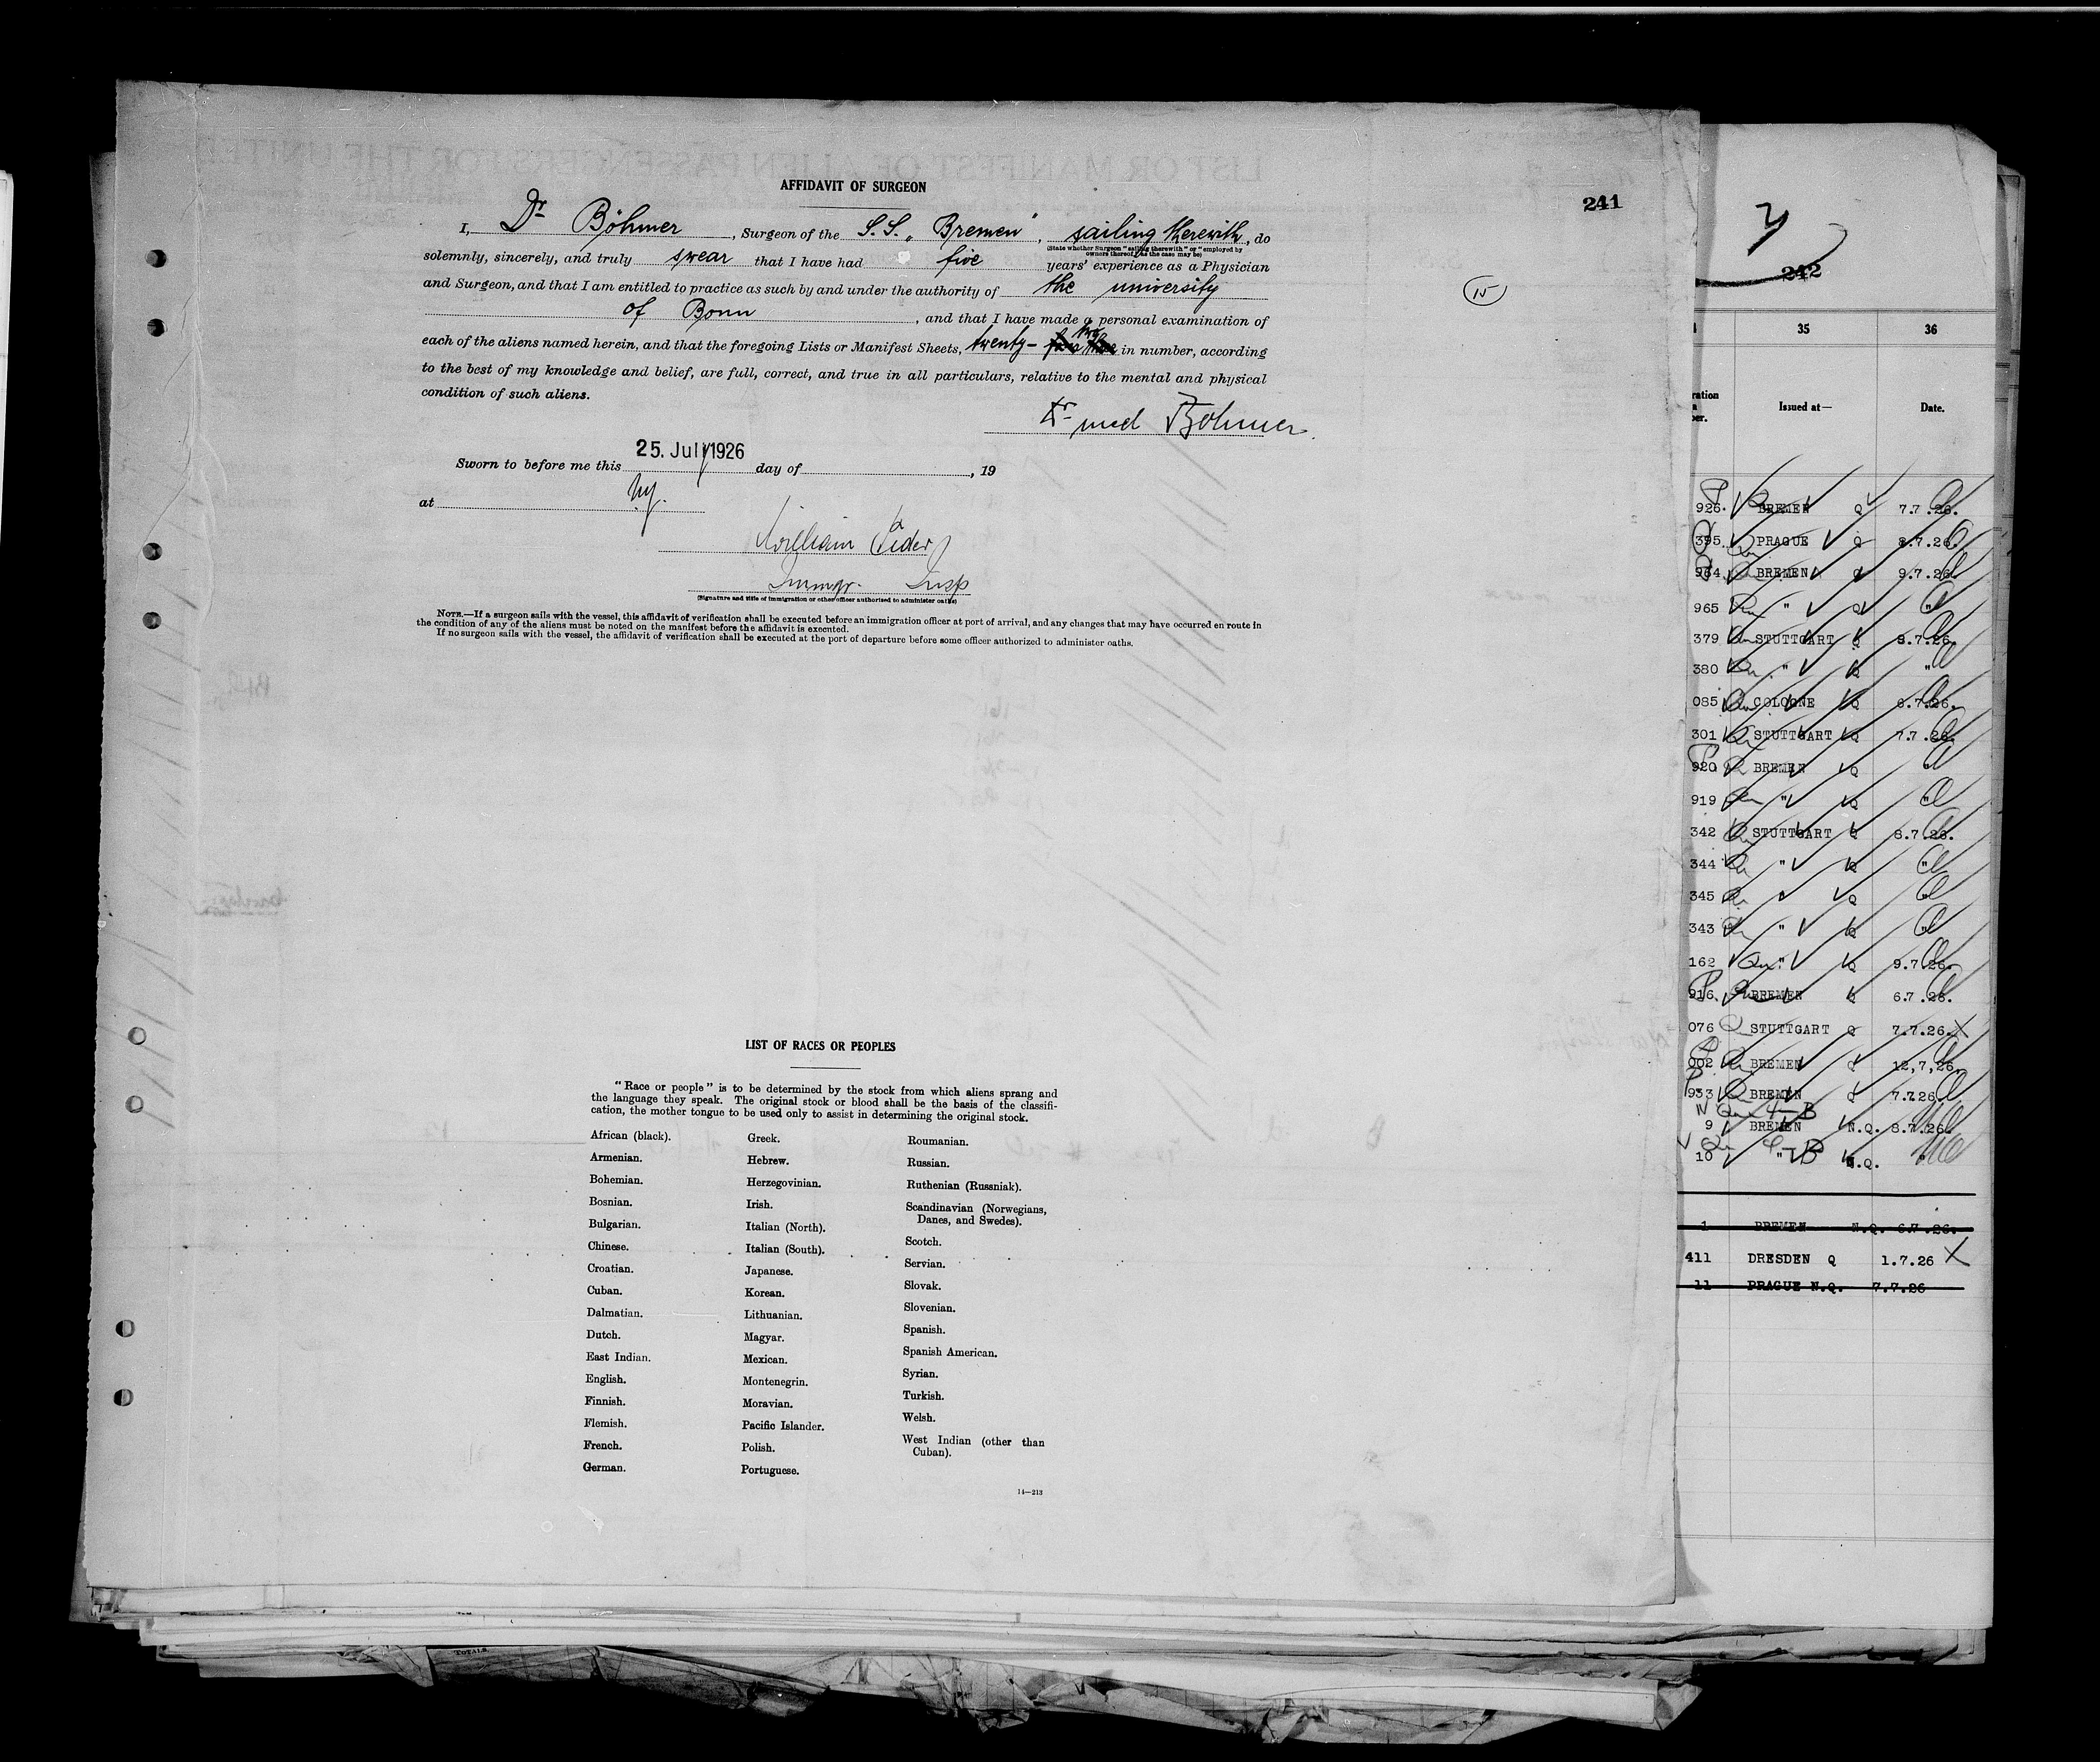 AFFIDAVIT OF SURGEON
241
I, Dr Böhmer, Surgeon of the S.S. „Bremen", sailing therewith, do
(State whether Surgeon "sailing therewith" or "employed by
owners thereof," as the case may be)
solemnly, sincerely, and truly swear that I have had five years' experience as a Physician
and Surgeon, and that I am entitled to practice as such by and under the authority of the university
of Bonn, and that I have made a personal examination of
each of the aliens named herein, and that the foregoing Lists or Manifest Sheets, twenty- two in number, according
to the best of my knowledge and belief, are full, correct, and true in all particulars, relative to the mental and physical
condition of such aliens.
Dr med Böhmer.
15
Sworn to before me this 25. July 1926 day of , 19
at NY.
William
Immgr. Insp
(Signature and title of immigration or other officer authorized to administer oaths)
NOTE.—If a surgeon sails with the vessel, this affidavit of verification shall be executed before an immigration officer at port of arrival, and any changes that may have occurred en route in
the condition of any of the aliens must be noted on the manifest before the affidavit is executed.
If no surgeon sails with the vessel, the affidavit of verification shall be executed at the port of departure before some officer authorized to administer oaths.
LIST OF RACES OR PEOPLES
"Race or people" is to be determined by the stock from which aliens sprang and
the language they speak. The original stock or blood shall be the basis of the classifi-
cation, the mother tongue to be used only to assist in determining the original stock.
African (black).
Armenian.
Bohemian.
Bosnian.
Bulgarian.
Chinese.
Croatian.
Cuban.
Dalmatian.
Dutch.
East Indian.
English.
Finnish.
Flemish.
French.
German.
Greek.
Hebrew.
Herzegovinian.
Irish.
Italian (North).
Italian (South).
Japanese.
Korean.
Lithuanian.
Magyar.
Mexican.
Montenegrin.
Moravian.
Pacific Islander.
Polish.
Portuguese.
Roumanian.
Russian.
Ruthenian (Russniak).
Scandinavian (Norwegians,
Danes, and Swedes).
Scotch.
Servian.
Slovak.
Slovenian.
Spanish.
Spanish American.
Syrian.
Turkish.
Welsh.
West Indian (other than
Cuban).
14—213
242
35 36
Issued at— Date.
926. BREMEN Q 7.7.26.
395. PRAGUE Q 8.7.26.
964 BREMEN Q 9.7.26.
965 " Q "
379 STUTTGART Q 8.7.26.
380 " Q "
085 COLOGNE Q 6.7.26.
301 STUTTGART Q 7.7.26.
920 BREMEN Q "
919 " Q "
342 STUTTGART Q 8.7.26.
344 " Q "
345 " Q "
343 " Q "
162 " Q 9.7.26.
916. BREMEN Q 6.7.26.
076 STUTTGART Q 7.7.26. X
002 BREMEN Q 12,7,26.
933 BREMEN Q 7.7.26
9 BREMEN N.Q. 8.7.26.
10 " N.Q. "
1 BREMEN N.Q. 6.7.26.
411 DRESDEN Q 1.7.26 X
11 PRAGUE N.Q. 7.7.26
TOTALS